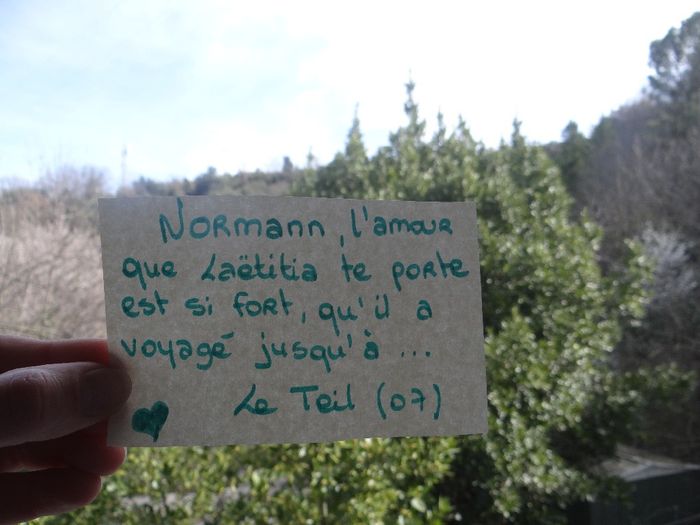 Normann, l'amour
que Laëtitia te porte
est si fort, qu'il a
voyagé jusqu'à ...
Le Teil (07)